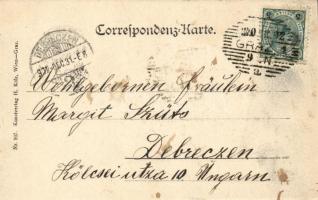 Correspondenz-Karte.
Wohlgebornen Fräulein
Margit Szüts
Debreczen
Kölcsei utza 10 Ungarn
GRAZ
Nr. 107. Kunstverlag H. Kölz, Wien—Graz.